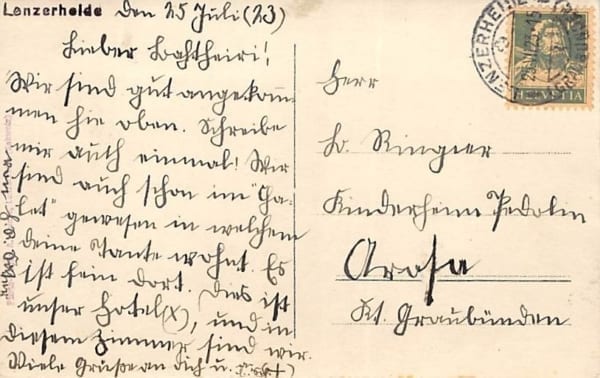 Lenzerheide den 25 Juli (23)
Lieber
Wir sind gut angekom-
men hie oben. Schreibe
mir auch einmal! Wir
sind auch schon im "Cha-
let" gewesen in welchem
deine Tante wohnt. Es
ist fein dort. Dies ist
unser Hotel(X), und in
diesem Zimmer sind wir.
Viele Grüße an dich u.
Herr
H. Ringier
Kinderheim Pedolin
Arosa
Kt. Graubünden
LENZERHEIDE
HELVETIA